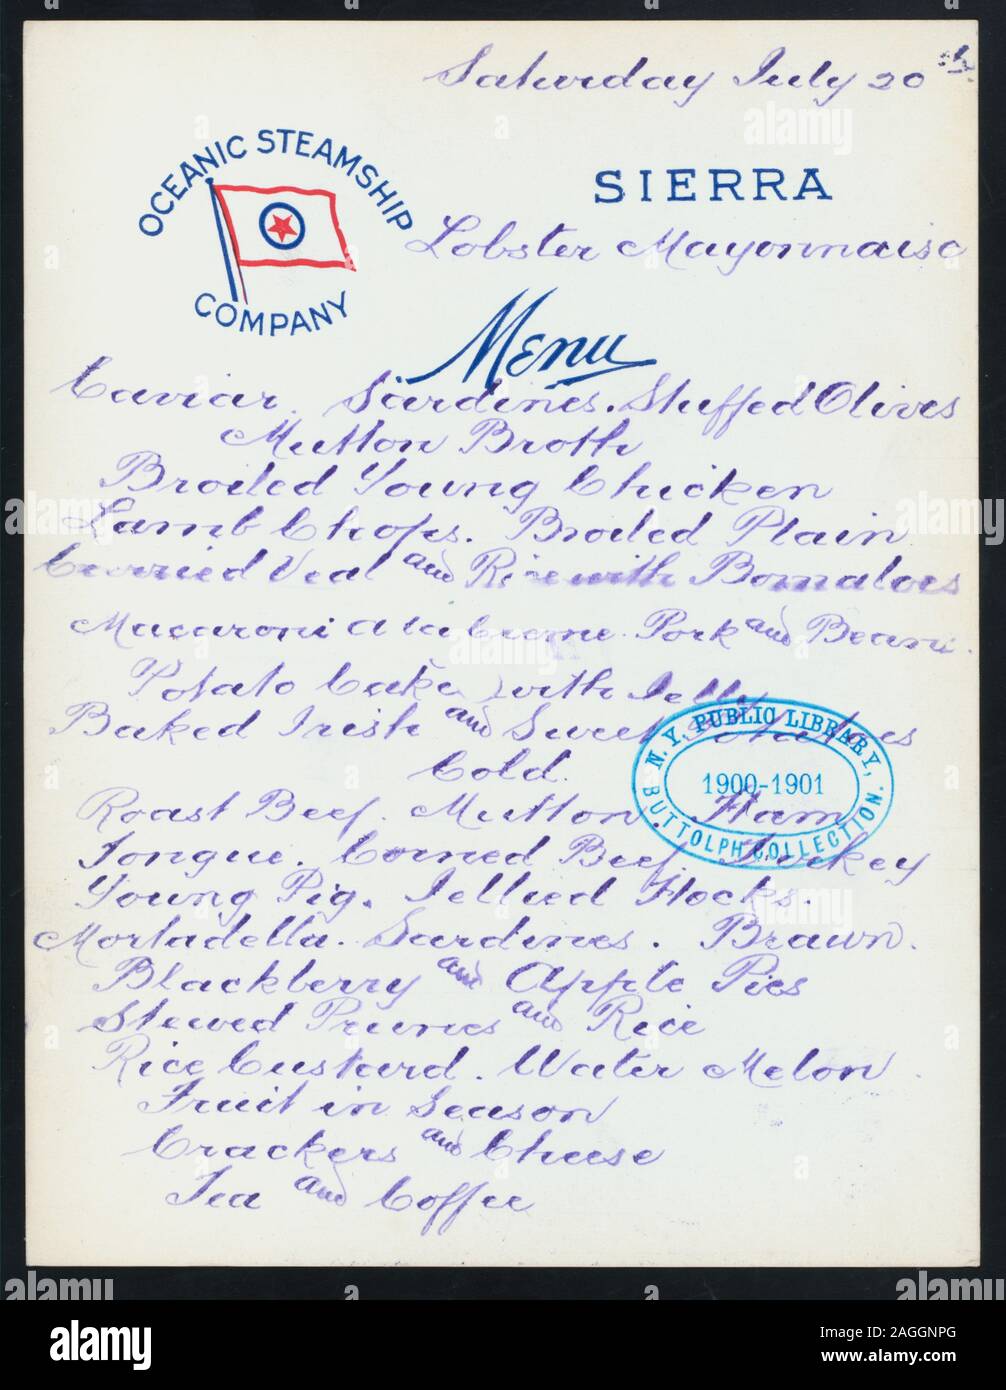 Saturday July 20th
OCEANIC STEAMSHIP
COMPANY
SIERRA
Lobster Mayonnaise
Menu
Caviar. Sardines. Stuffed Olives
Mutton Broth
Broiled Young Chicken
Lamb Chops. Broiled Plain
Curried Veal and Rice with
Macaroni a la Creme. Pork and Beans.
Potato Cake with Jelly
Baked Irish and Sweet Potatoes
Cold.
Roast Beef. Mutton. Ham
Tongue. Corned Beef. Turkey
Young Pig. Jellied Hocks.
Mortadella. Sardines. Brawn.
Blackberry and Apple Pies
Stewed Prunes and Rice
Rice Custard. Water Melon
Fruit in Season
Crackers and Cheese
Tea and Coffee
N. Y. PUBLIC LIBRARY,
1900-1901
BUTTOLPH COLLECTION.
alamy
a
alamy
Image ID: 2AGGNPG
www.alamy.com